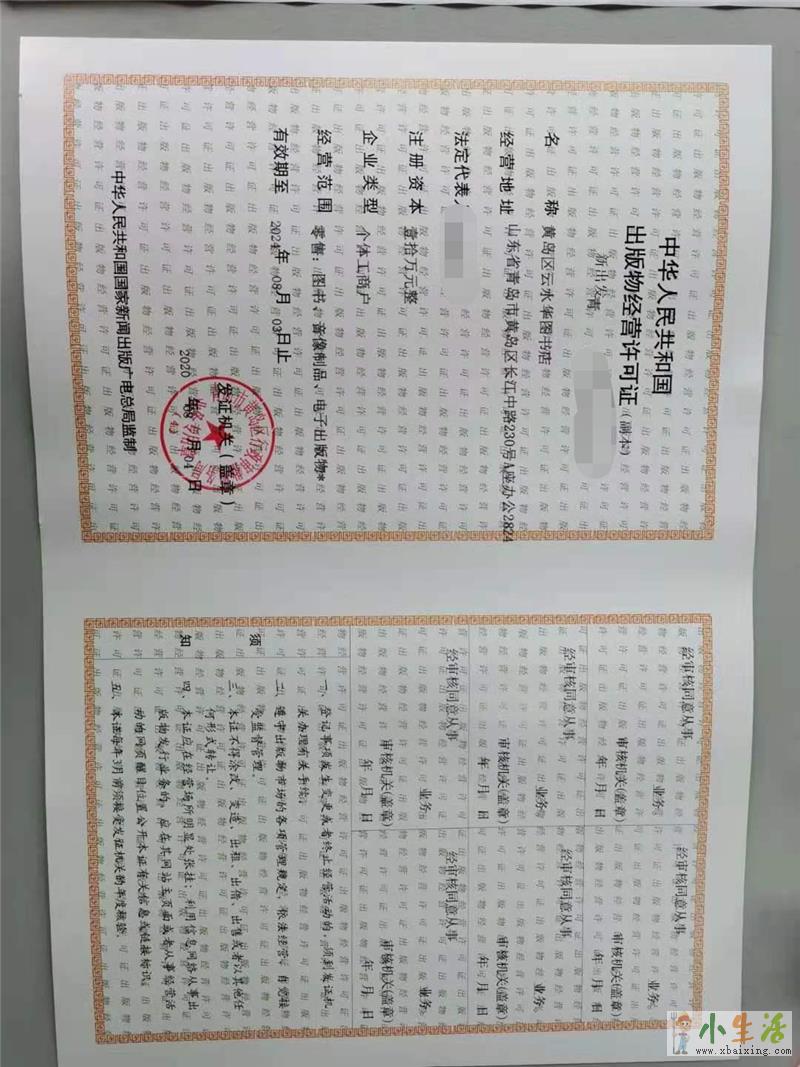 中华人民共和国
出版物经营许可证(副本)
新出发青
名 称 黄岛区云水华图书店
经营地址 山东省青岛市黄岛区长江中路230号A座办公2824
法定代表人
注册资本 壹拾万元整
企业类型 个体工商户
经营范围 零售:图书、音像制品、电子出版物*
有效期至 2024年08月03日止
发证机关(盖章)
2020年8月04日
中华人民共和国国家新闻出版广电总局监制
经审核同意从事
业务。
审核机关(盖章)
年 月 日
经审核同意从事
业务。
审核机关(盖章)
年 月 日
经审核同意从事
业务。
审核机关(盖章)
年 月 日
经审核同意从事
业务。
审核机关(盖章)
年 月 日
经审核同意从事
业务。
审核机关(盖章)
年 月 日
经审核同意从事
业务。
审核机关(盖章)
年 月 日
须知
一、登记事项发生变更或者终止经营活动的,须到发证机
关办理有关手续。
二、遵守出版物市场的各项管理规定,依法经营,自觉接
受监督管理。
三、本证不得涂改、变造、出租、出借、出售或者以其他任
何形式转让。
四、本证应在经营场所明显处张挂;利用信息网络从事出
版物发行业务的,应在其网站主页面或者从事经营活
动的网页醒目位置公开本证有关信息或链接标识。
五、本证每年3月前须接受发证机关的年度核验
小生活
www.xbaixing.com